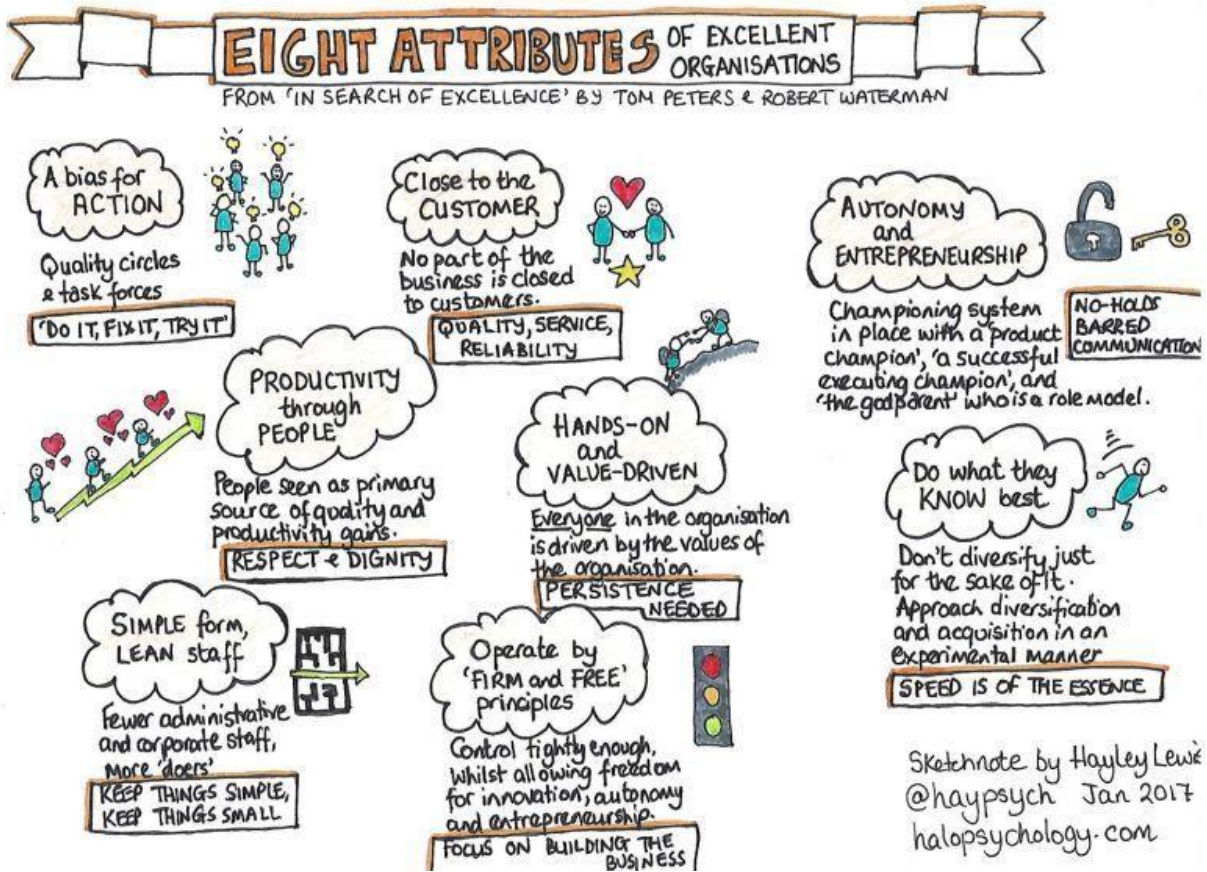 EIGHT ATTRIBUTES OF EXCELLENT
ORGANISATIONS
FROM 'IN SEARCH OF EXCELLENCE' BY TOM PETERS & ROBERT WATERMAN
A bias for
ACTION
Quality circles
& task forces
'DO IT, FIX IT, TRY IT'
Close to the
CUSTOMER
No part of the
business is closed
to customers.
QUALITY, SERVICE,
RELIABILITY
AUTONOMY
and
ENTREPRENEURSHIP
Championing system
in place with a 'product
champion', 'a successful
executing champion', and
'the godparent' who is a role model.
NO-HOLDS
BARRED
COMMUNICATION
PRODUCTIVITY
through
PEOPLE
People seen as primary
source of quality and
productivity gains.
RESPECT & DIGNITY
HANDS-ON
and
VALUE-DRIVEN
Everyone in the organisation
is driven by the values of
the organisation.
PERSISTENCE
NEEDED
Do what they
KNOW best
Don't diversify just
for the sake of it.
Approach diversification
and acquisition in an
experimental manner
SPEED IS OF THE ESSENCE
SIMPLE form,
LEAN staff
Fewer administrative
and corporate staff,
more 'doers'
KEEP THINGS SIMPLE,
KEEP THINGS SMALL
Operate by
'FIRM and FREE'
principles
Control tightly enough,
whilst allowing freedom
for innovation, autonomy
and entrepreneurship.
FOCUS ON BUILDING THE
BUSINESS
Sketchnote by Hayley Lewi
@haypsych Jan 2017
halopsychology.com